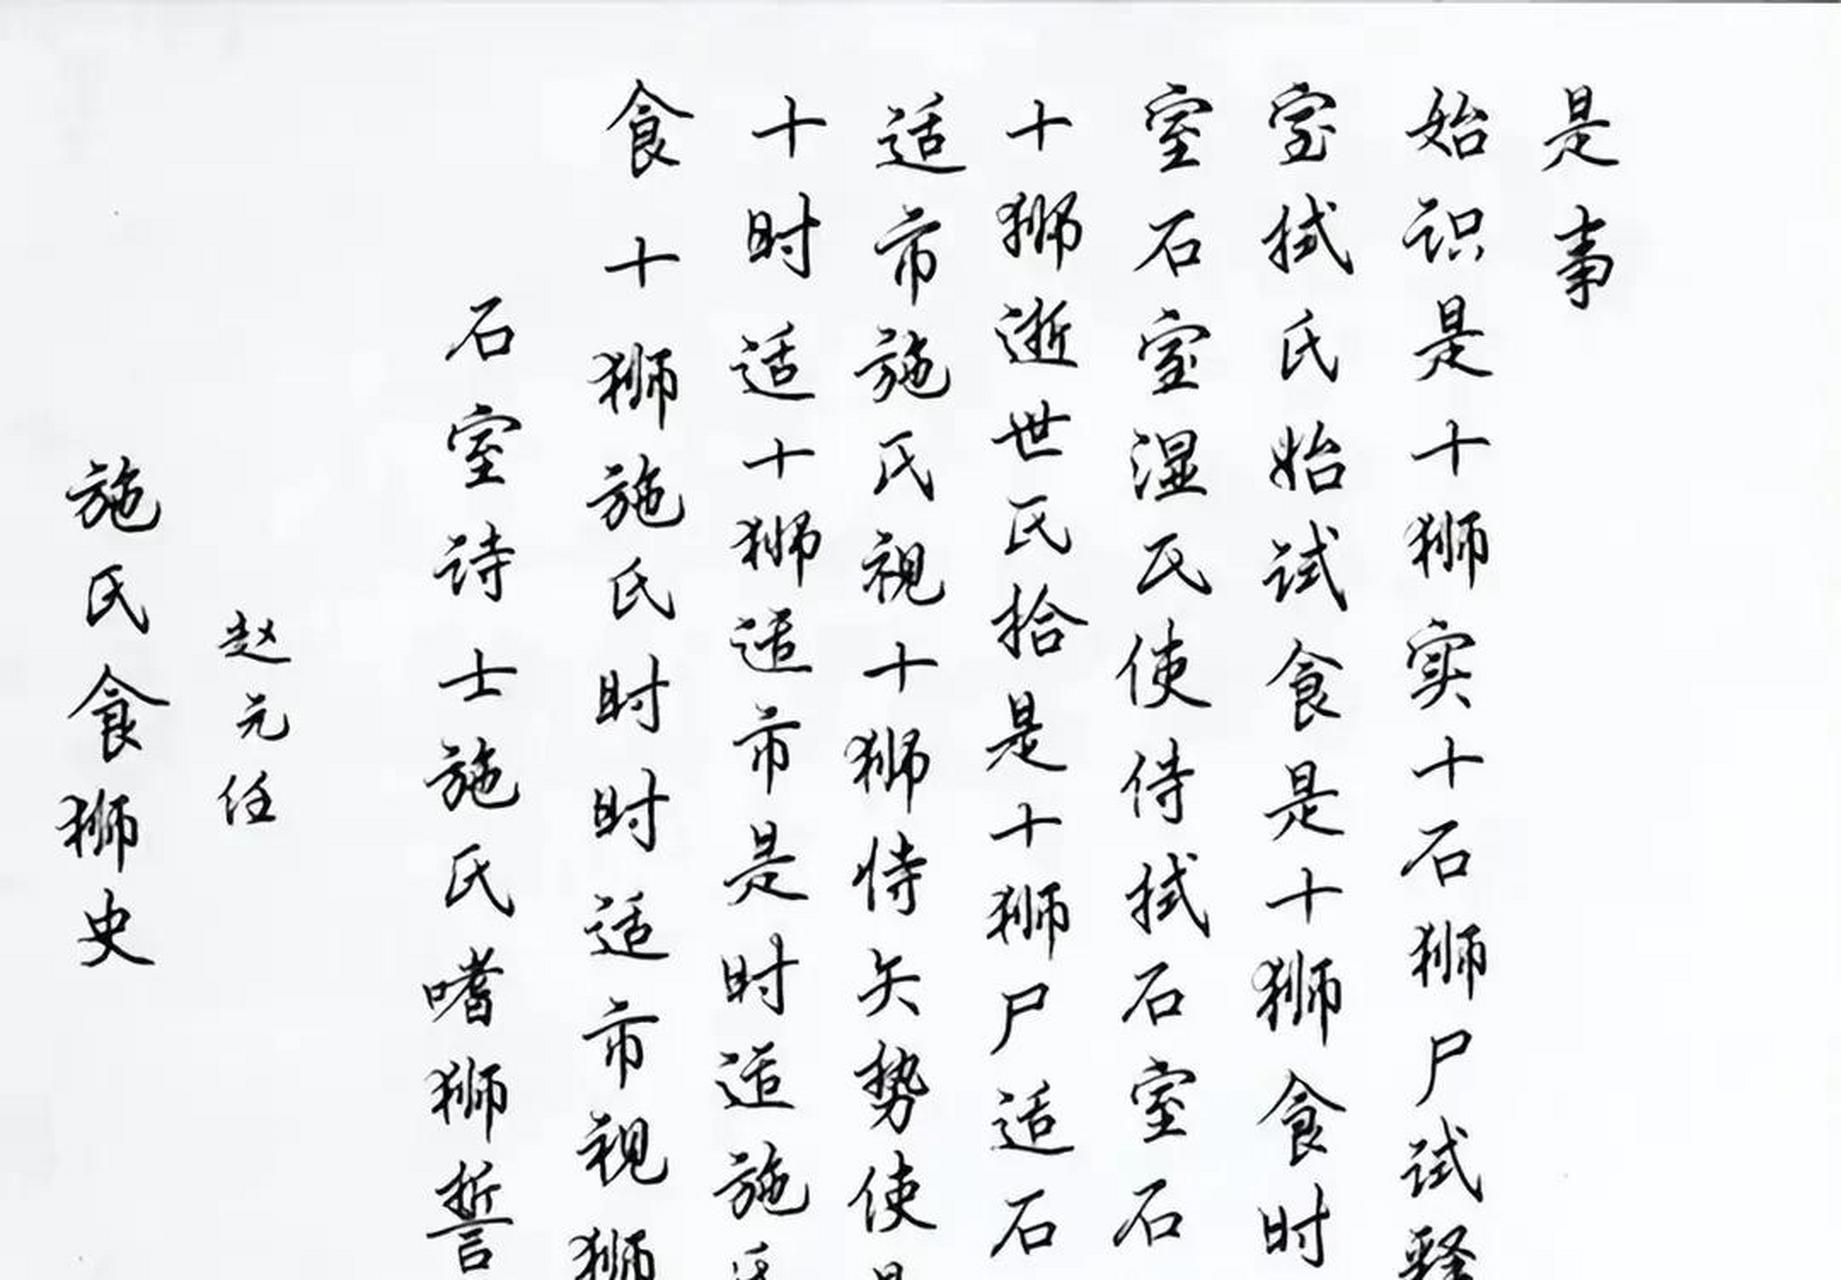 施氏食狮史
赵元任
石室诗士施氏嗜狮誓
食十狮施氏时时适市视狮
十时适十狮适市是时适施氏
适市施氏视十狮恃矢势使
十狮逝世氏拾是十狮尸适石
室石室湿氏使侍拭石室石
室拭氏始试食是十狮食时
始识是十狮实十石狮尸试释
是事